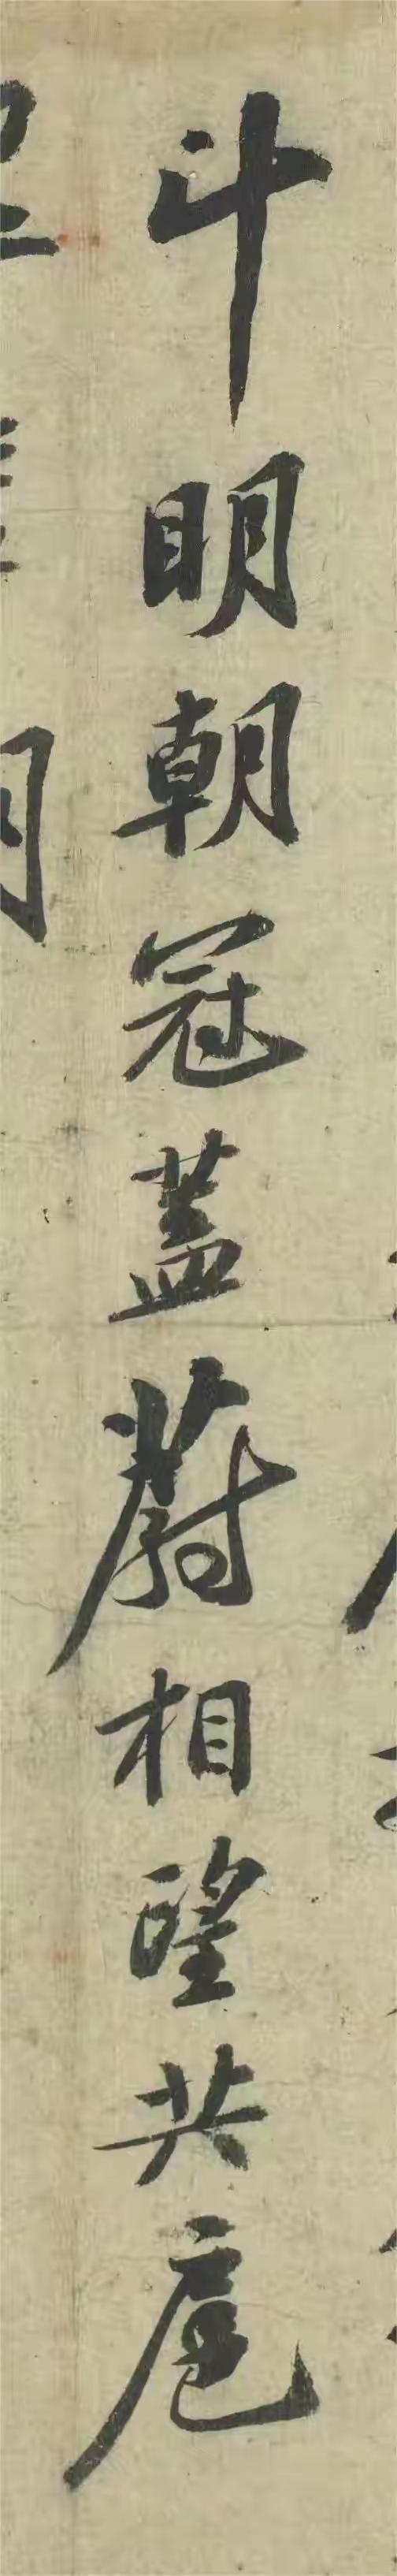 斗明朝冠蓋蔚相望共扈